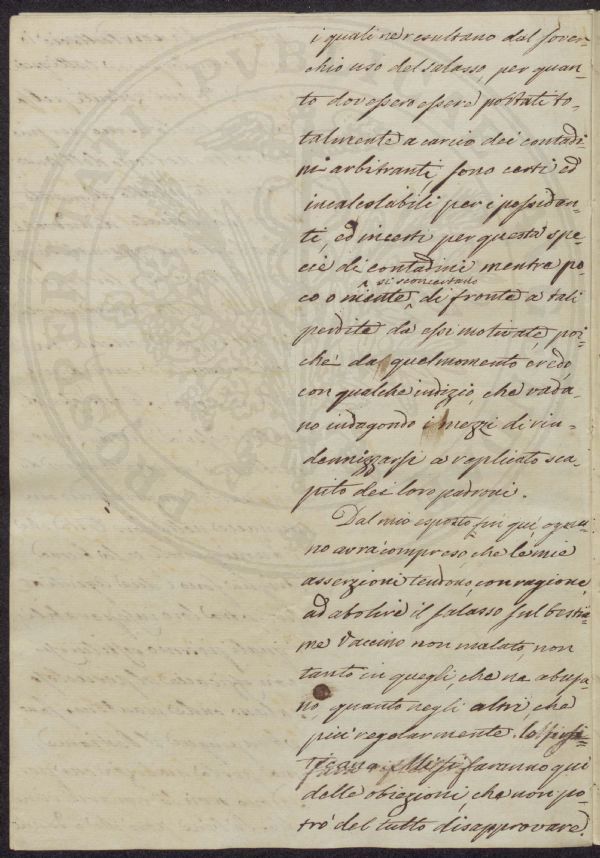 i quali ne resultano dal sover-
chio uso del salasso, per quan-
to dovessero essere portati to-
talmente a carico dei contadi-
ni arbitranti, sono certi ed
incalcolabili per i possiden-
ti, ed incerti per questa spe-
cie di contadini mentre po-
si sconcertano
co o niente, di fronte a tali
perdite da essi motivate, poi-
chè da quel momento credo,
con qualche indizio, che vada-
no indagando i mezzi di rin-
dennizzarsi a replicato sca-
pito dei loro padroni.
Dal mio esposto fin qui ognu-
no avrà compreso, che le mie
asserzioni tendono, con ragione,
ad abolire il salasso sul bestia-
me Vaccino non malato, non
tanto in quegli, che ne abusa-
no, quanto negli altri, che
più regolarmente lo
si faranno qui
delle obiezioni, che non po-
trò del tutto disapprovare.
PUBLICAE
PROSPERITATI